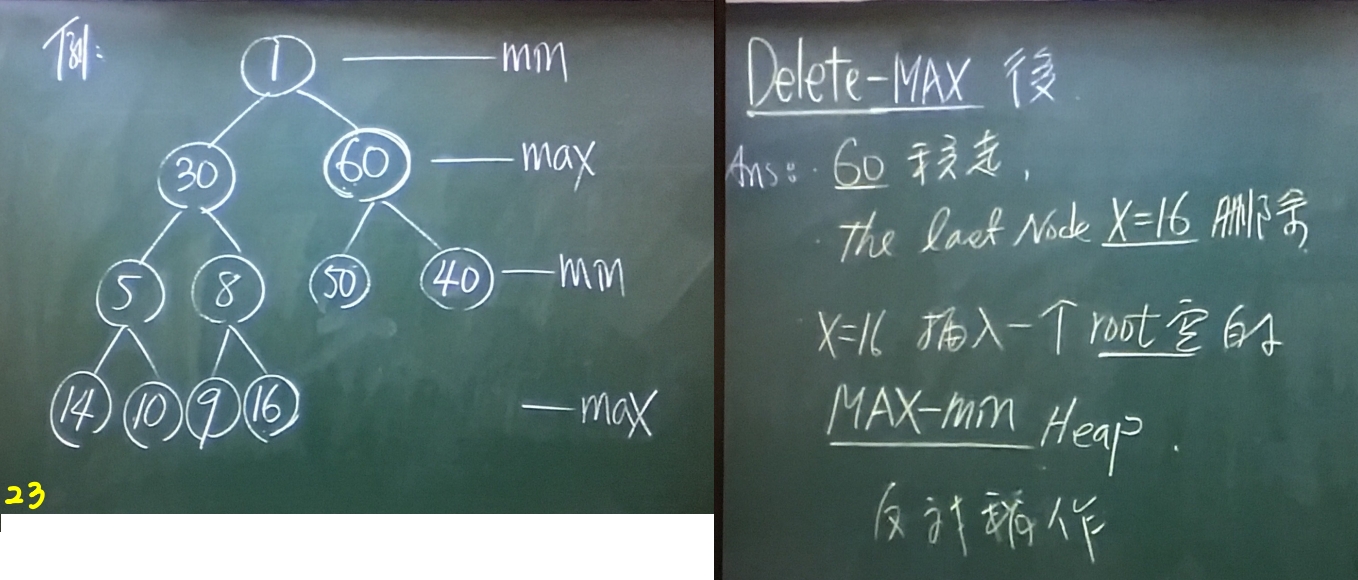 例:
1 min
30 60 max
5 8 50 40 min
14 10 9 16 max
23
Delete-MAX 後
Ans: 60 移走,
The last Node X=16 刪除
X=16 插入一个 root 空的
MAX-min Heap.
反对稱作